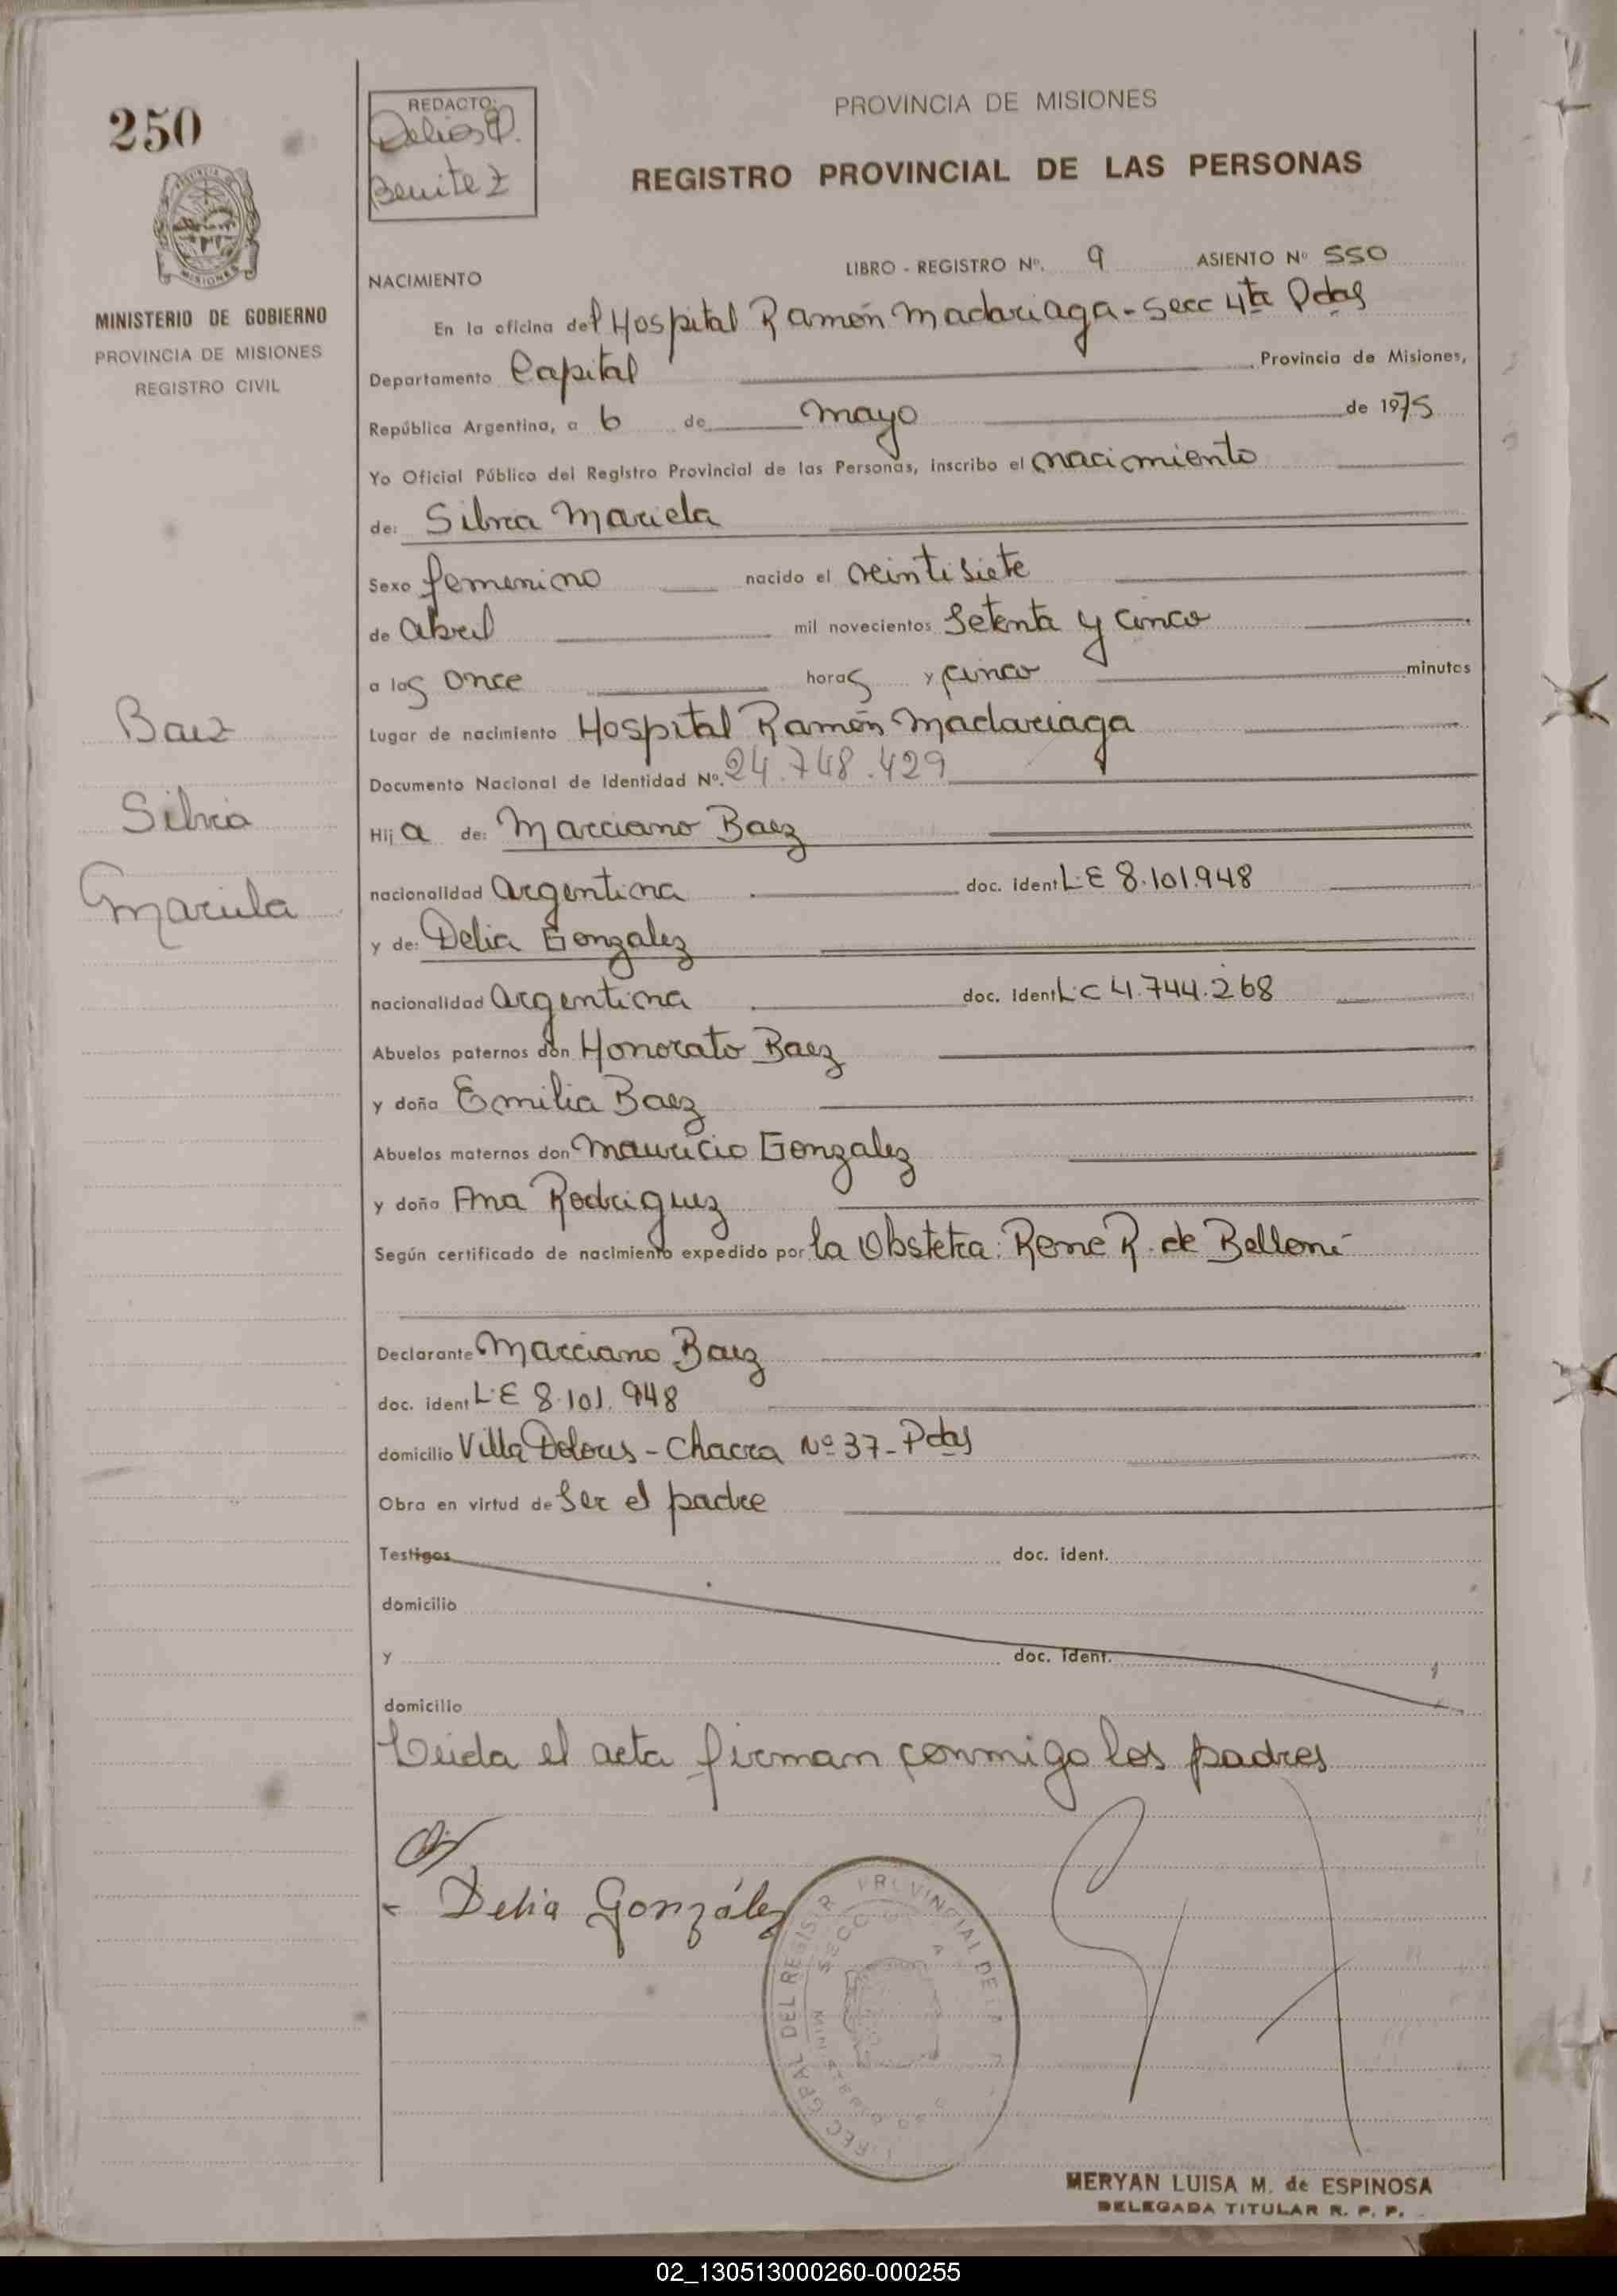 250
REDACTO:
Delios
Benitez
PROVINCIA DE MISIONES
REGISTRO PROVINCIAL DE LAS PERSONAS
MISIONES
MINISTERIO DE GOBIERNO
PROVINCIA DE MISIONES
REGISTRO CIVIL
NACIMIENTO
LIBRO - REGISTRO Nº. 9 ASIENTO Nº 550
En la oficina del Hospital Ramón Madariaga - Secc 4ta Pdas
Departamento Capital Provincia de Misiones,
República Argentina, a 6 de mayo de 1975
Yo Oficial Público del Registro Provincial de las Personas, inscribo el nacimiento
de: Silvia Mariela
Sexo femenino nacido el veintisiete
de abril mil novecientos setenta y cinco
a las once horas y cinco minutos
Lugar de nacimiento Hospital Ramón Madariaga
Documento Nacional de Identidad Nº. 24.748.429
Hija de: Marciano Baez
nacionalidad argentina doc. ident LE 8.101.948
y de: Delia Gonzalez
nacionalidad argentina doc. ident LC 4.744.268
Abuelos paternos don Honorato Baez
y doña Emilia Baez
Abuelos maternos don Mauricio Gonzalez
y doña Ana Rodriguez
Según certificado de nacimiento expedido por la Obstetra: Rene R. de Belloni
Declarante Marciano Baez
doc. ident LE 8.101.948
domicilio Villa Dolores - Chacra Nº 37 - Pdas
Obra en virtud de ser el padre
Testigos doc. ident.
domicilio
y doc. ident.
domicilio
Leida el acta firman conmigo los padres
Baez
Silvia
Mariela
Delia González
MERYAN LUISA M. de ESPINOSA
DELEGADA TITULAR R. P. P.
02_130513000260-000255